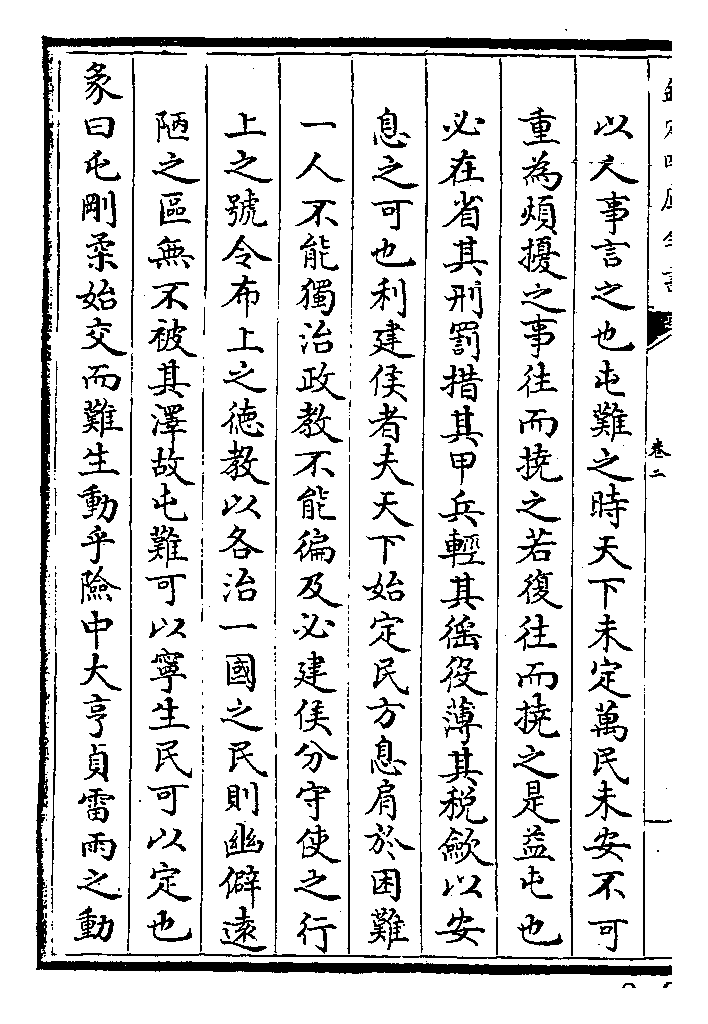 欽定四庫全書
卷二
以人事言之也屯難之時天下未定萬民未安不可
重為煩擾之事往而撓之若復往而撓之是益屯也
必在省其刑罰措其甲兵輕其徭役薄其稅歛以安
息之可也利建侯者夫天下始定民方息肩於困難
一人不能獨治政教不能徧及必建侯分守使之行
上之號令布上之徳教以各治一國之民則幽僻遠
陋之區無不被其澤故屯難可以寧生民可以定也
彖曰屯剛柔始交而難生動乎險中大亨貞雷雨之動